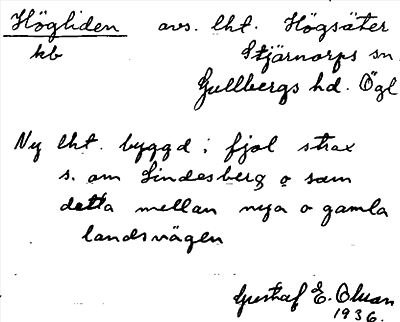 Högliden avs. lht. Högsäter
kb Stjärnorps sn.
Gullbergs hd. Ögl
Ny lht. byggd i fjol strax
s. om Lindesberg o som
detta mellan nya o gamla
landsvägen
Gustaf E. Olsson
1936.